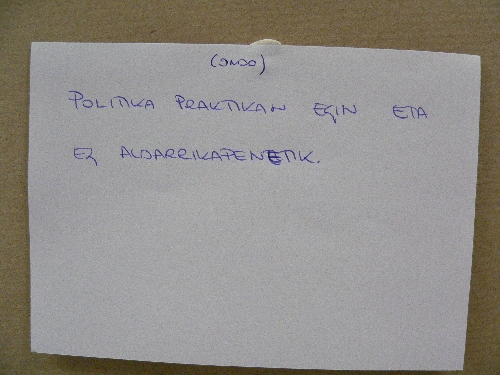 (ONDO)
POLITIKA PRAKTIKAN EGIN ETA
EZ ALDARRIKAPENETIK.